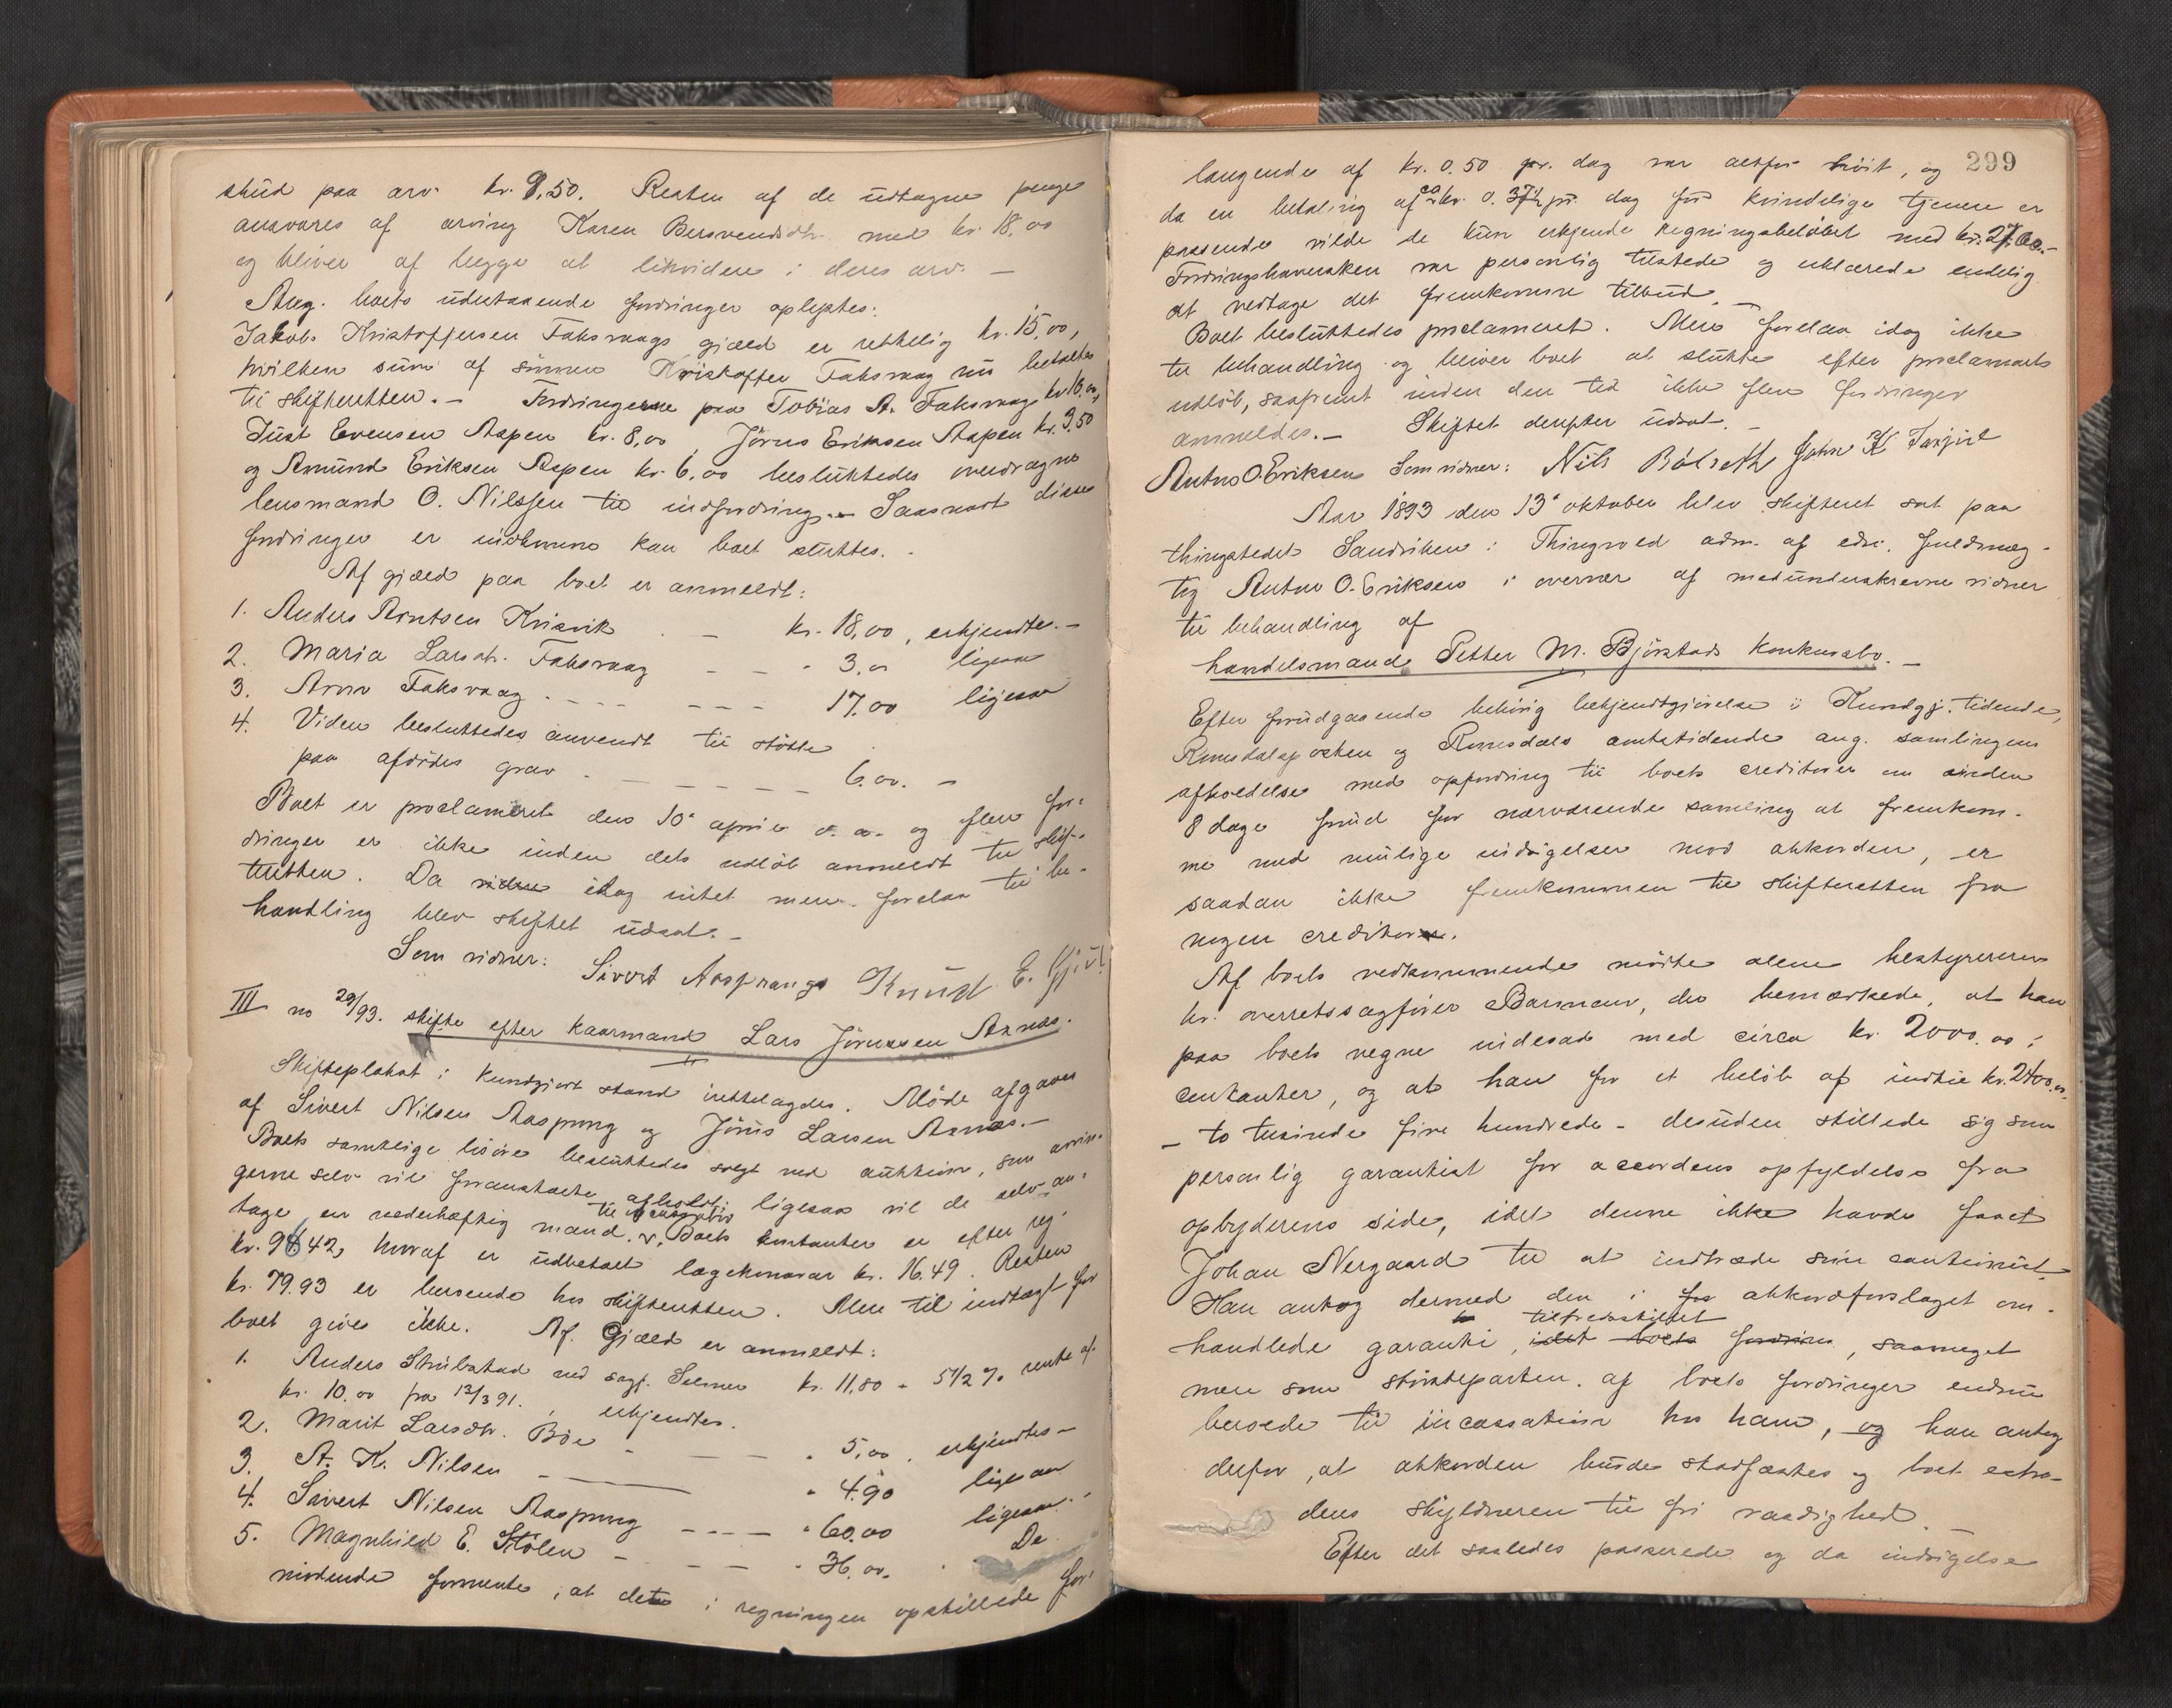 skud paa arv kr. 8,50. Resten af de udtagne penge
ansvares af arving Karen Bersvendsdtr. med kr. 18,00
og bliver af begge at likvidere i deres arv. —
Ang. boets udestaaende fordringer oplystes:
Jakob Kristoffersen Faksvaags gjæld er rettelig kr. 15,00,
hvilken sum af sønnen Kristoffer Faksvaag nu betaltes
til skifteretten. — Fordringerne paa Tobias A. Faksvaag kr. 10,00,
Just Evensen Aspen kr. 8,00, Jörus Eriksen Aspen kr. 3,50
og Amund Eriksen Aspen kr. 6,00 besluttedes overdragne
lensmand O. Nilssen til indfordring. — Saasnart disse
fordringer er indkomne kan boet sluttes. —
Af gjæld paa boet er anmeldt:
1. Anders Arntsen Krisvik . — kr. 18,00, erkjendtes. —
2. Maria Larsdtr. Faksvaag — — " 3,00 ligesaa
3. Arnt Faksvaag — — — 17.00 ligesaa
4. Viden besluttedes anvendt til støtte
paa afdødes grav — — — 6.00. —
Boet er proclameret den 10de april d. a. og flere for-
dringer er ikke inden dets udløb anmeldt til skif-
teretten. Da videre idag intet mere forelaa til be-
handling blev skiftet udsat. —
Som vidner: Sivert Aaspraang Knudt E. Gjül
III no 29/93. skifte efter kaarmand Lars Jörussen Aznæs.
Skifteplakat i kundgjort stand irettelagdes. Møde afgaves
af Sivert Nilsen Aaspung og Jörüs Larsen Aznæs. —
Boets samtlige løsøre besluttedes solgt ved auktion, som arvin-
gerne selv vil foranstalte afholdt; ligesaa vil de selv an-
tage en vederhæftig mand til incassator. Boets kontanter er efter reg.
kr. 96,42, hvoraf er udbetalt lægehonorar kr. 16.49. Resten
kr. 79.93 er beroende hos skifteretten. Mere til indtægt for
boet gives ikke. Af Gjæld er anmeldt:
1. Anders Strübstad ved sagf. Selmer kr. 11,80 + 5 1/2 % rente af
kr. 10.00 fra 12/3 91., erkjendtes.
2. Marit Larsdtr. Böe — — — " 5,00, erkjendtes —
3. A. K. Nilsen — — " 4.90 ligesaa
4. Sivert Nilsen Aaspung — — — " 60.00 ligesaa. —
5. Magnhild E. Stölen — — — " 36.00. De
mødende formente, at det i regningen opstillede for-
299
langende af kr. 0.50 pr. dag var altfor høit, og
da en betaling af ca kr. 0.37½ pr. dag for kvindelige tjenere er
passende vilde de kun erkjende regningsbeløbet med kr. 27.00. —
Fordringshaversken var personlig tilstede og erklærede endelig
at vedtage det fremkomne tilbud. —
Boet besluttedes proclameret. Mere forelaa idag ikke
til behandling og bliver boet at slutte efter proclamats
udløb, saafremt inden den tid ikke flere fordringer
anmeldes. — Skiftet derefter udsat. —
Anton O. Eriksen Som vidner: Nils Bölseth John K
Aar 1893 den 13de oktober blev skifteret sat paa
thingstedet Sandviken i Thingvold adm. af edsv. fuldmæg-
tig Anton O. Eriksen i overvær af medunderskrevne vidner
til behandling af
handelsmand Petter M. Björstads konkursbo. —
Efter forudgaaende behørig bekjendtgjørelse i Kundgj. tidende,
Romsdalsposten og Romsdals amtstidende ang. samlingens
afholdelse med opfordring til boets creditorer om inden
8 dage forud for nærværende samling at fremkom-
me med mulige indsigelser mod akkorden, er
saadan ikke fremkommen til skifteretten fra
nogen creditor.
Af boets vedkommende mødte alene bestyreren
hr. overretssagfører Barmann, der bemærkede, at han
paa boets vegne indesad med circa kr. 2000.00 i
contanter, og at han for et beløb af indtil kr. 2400.00
— to tusinde fire hundrede — desuden stillede sig som
personlig garantist for accordens opfyldelse fra
opbyderens side, idet denne ikke havde faaet
Johan Nergaard til at indtræde som cautionist.
Han antog dermed den i for akkordforslaget om-
handlede garanti tilfredsstillet, idet boets fordrin, saameget
mere som størsteparten af boets fordringer endnu
beroede til incassation hos ham, og han antog
derfor, at akkorden burde stadfæstes og boet extra-
deres skyldneren til fri raadighed. —
Efter det saaledes passerede og da indsigelse